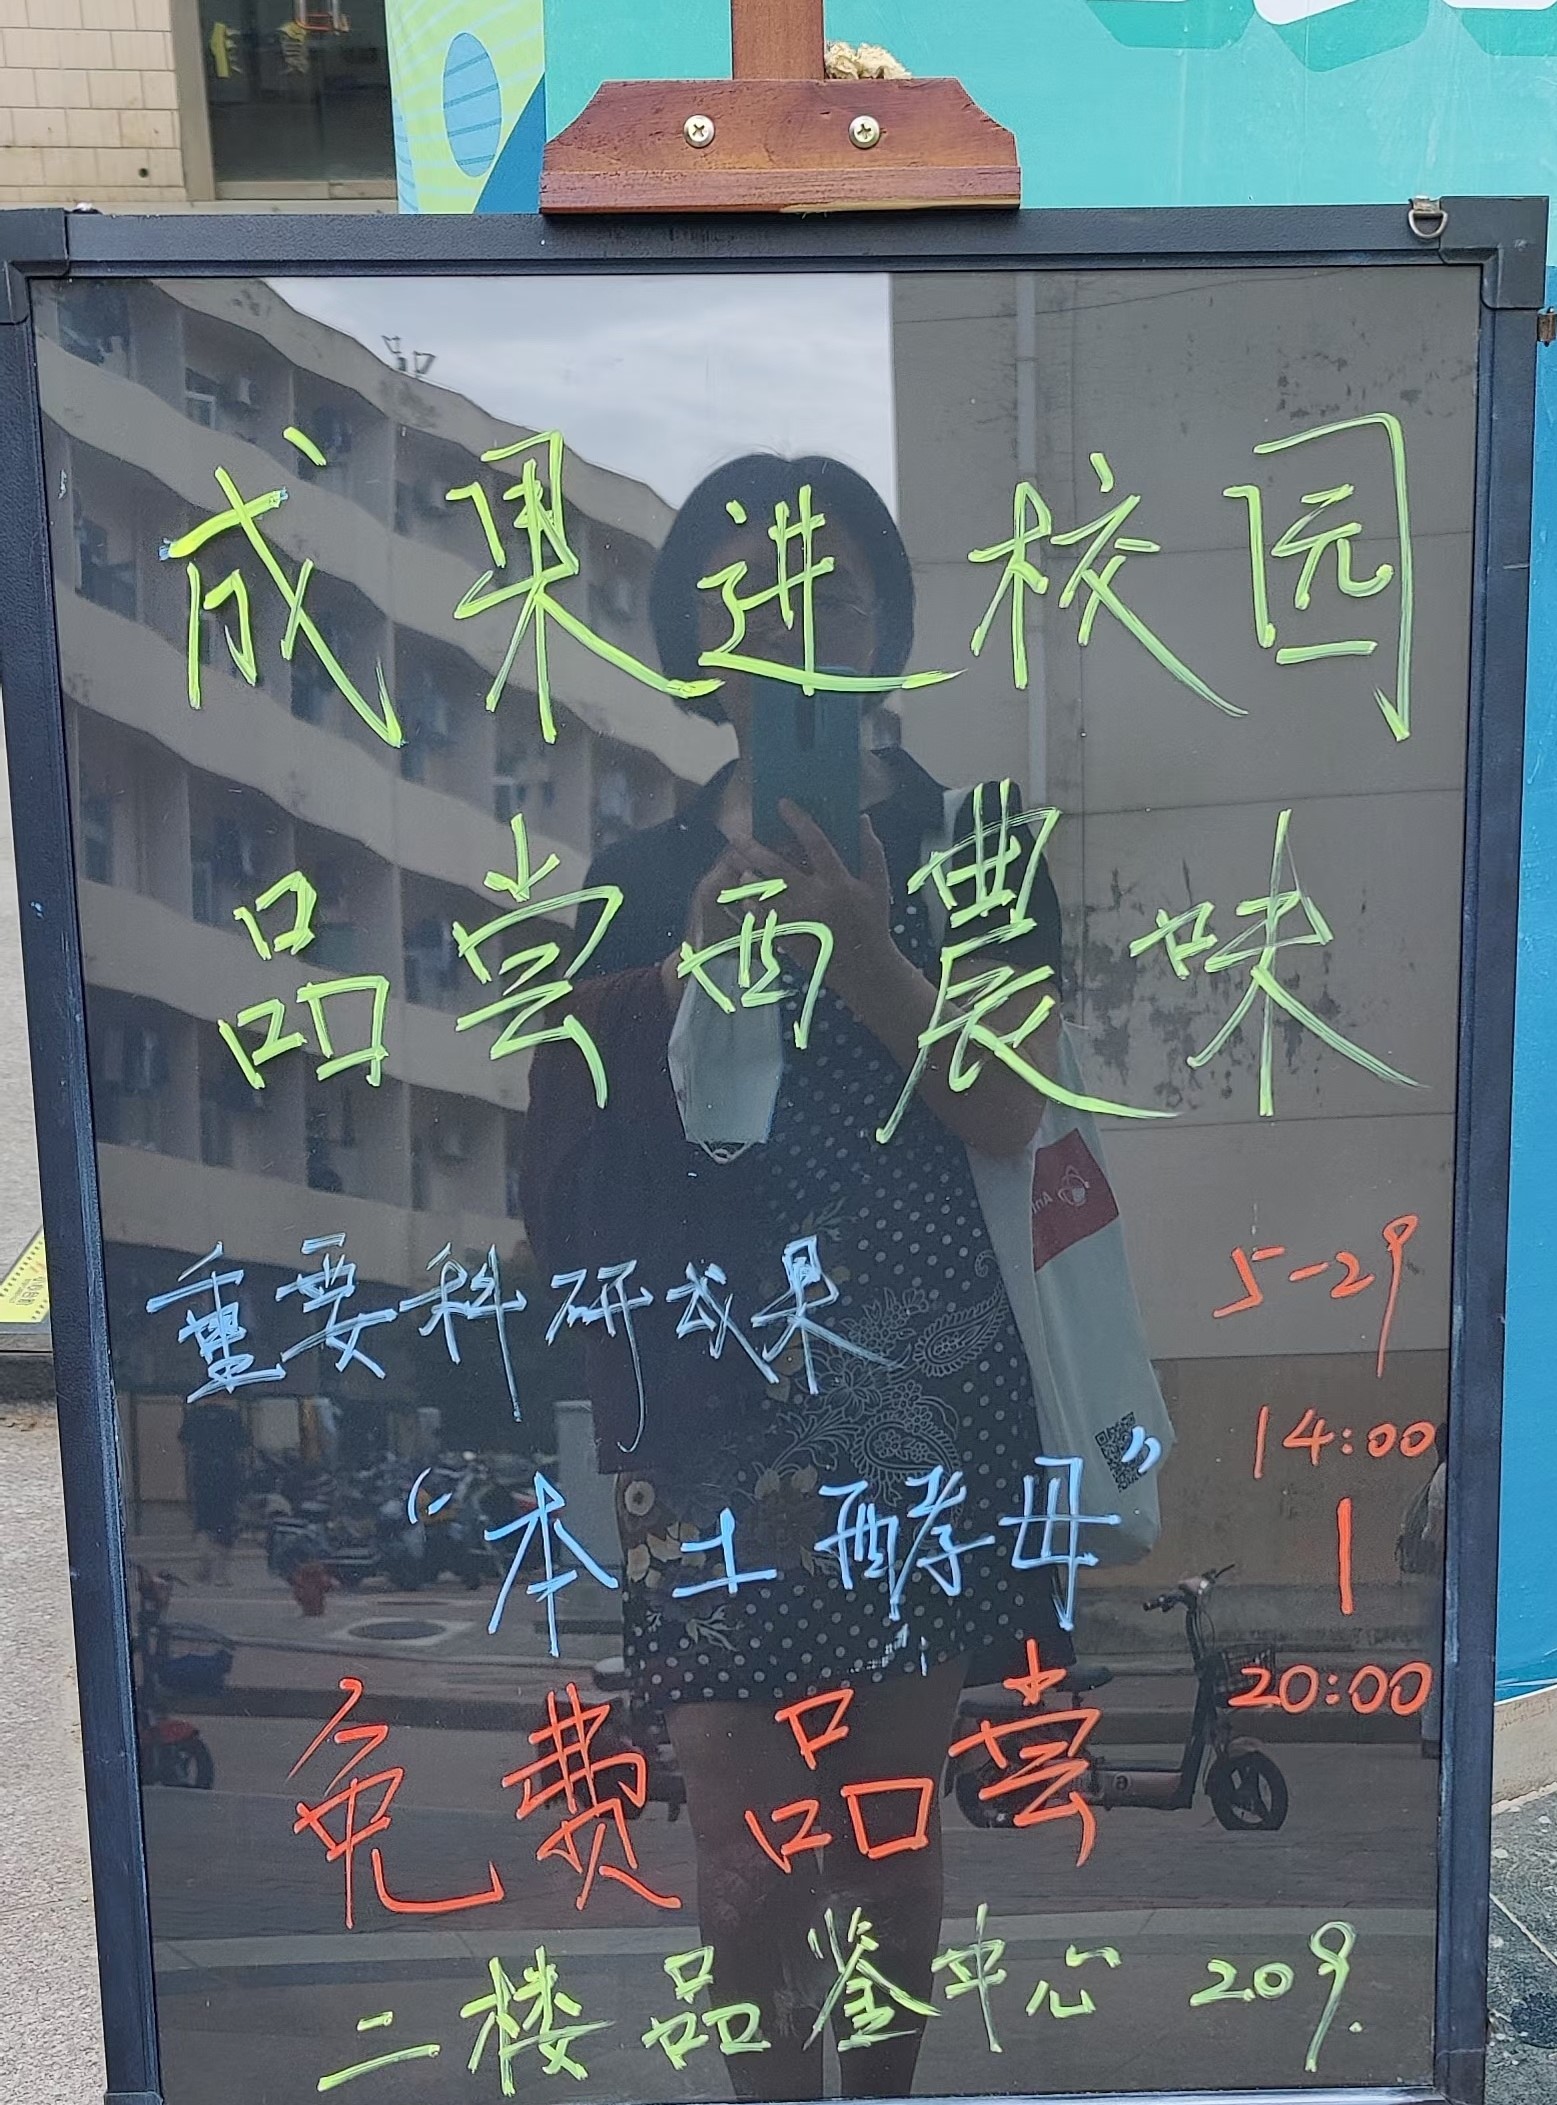 成果进校园
品尝西農味
重要科研成果
5-29
14:00
|
20:00
“本土酵母”
免费品尝
二楼品鉴中心 209.